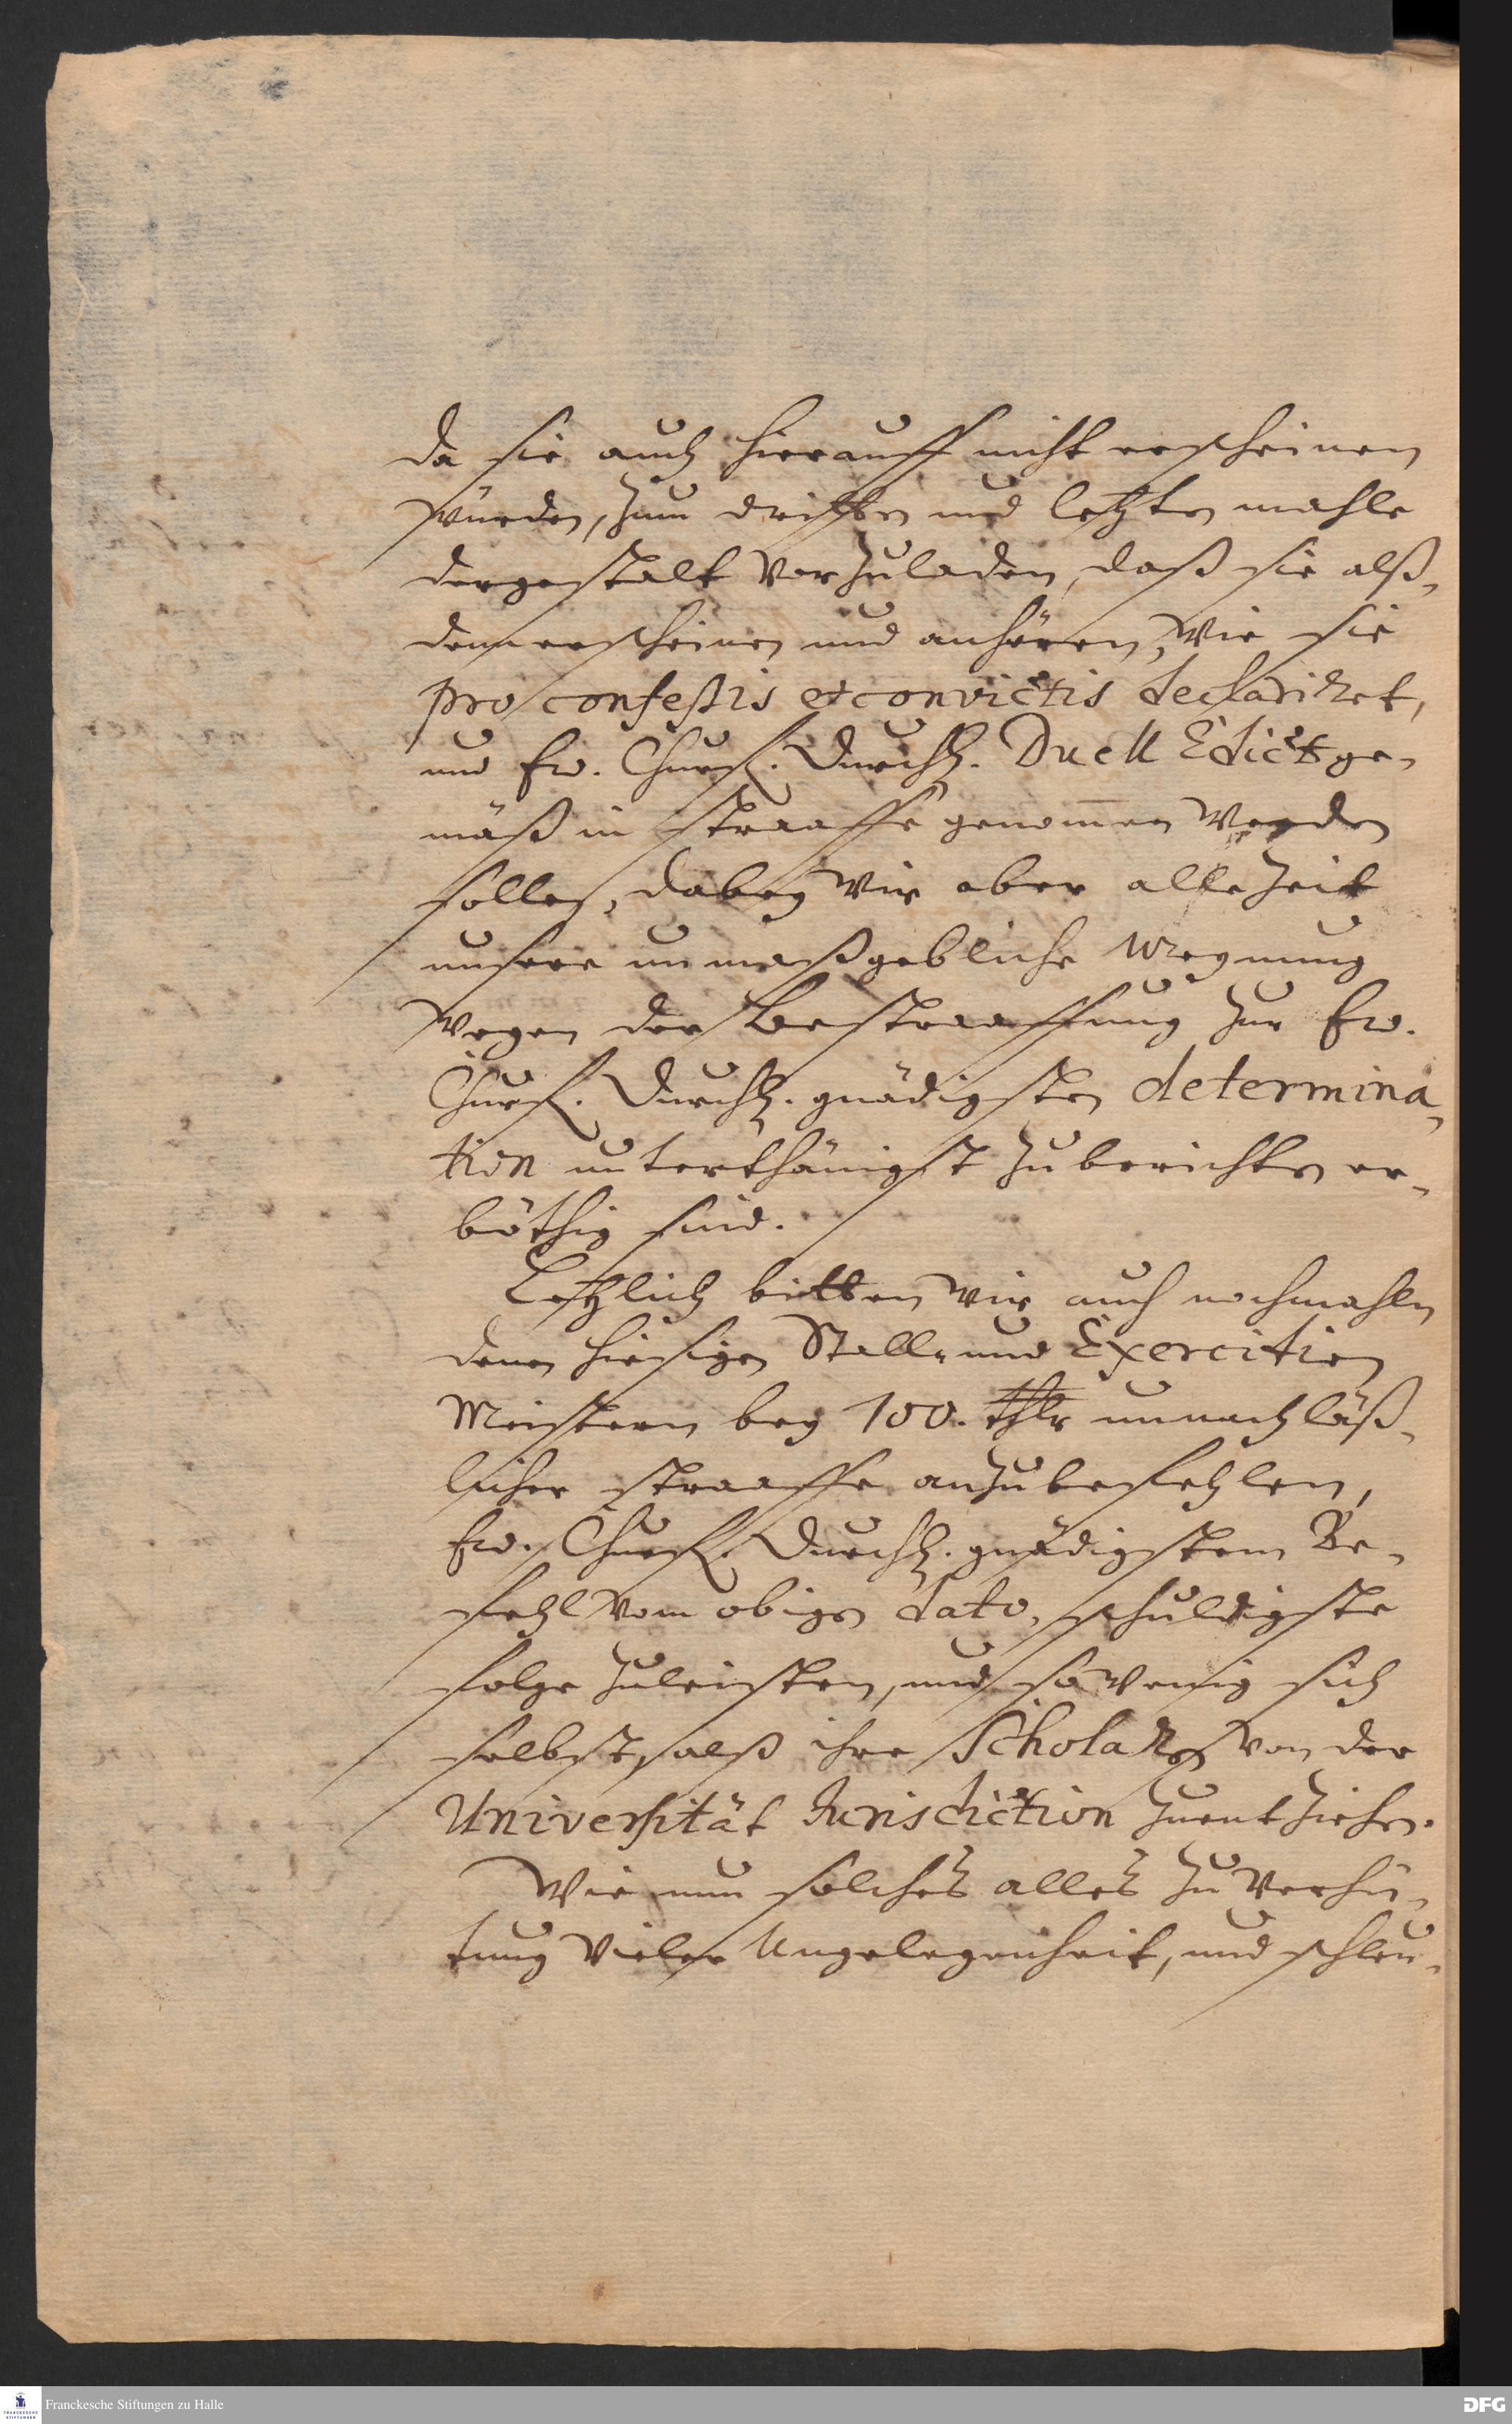 da sie auch hierauff nicht erscheinen
würden, zum dritten und letzten mahle
dergestalt vorzuladen, daß sie alß„
denn erscheinen und anhören, wie sie
pro confeßis et convictis declariret,
und Ew. Churfl. Durchl. Duell Edict ge„
mäß in straaffe genom̄en werden
sollen, dabey wir aber alle Zeit
unsere unmaßgebliche Meynung
wegen der Bestraaffung zur Ew.
Churfl. Durchl. gnädigsten determina„
tion unterthänigst zu berichten er„
böthig sind.
Letzlich bitten wir auch nochmahln
denen hiesigen Stall„ und Exercitien
Meistern bey 100. thlr unnachläß„
licher straaffe anzubefehlen,
Ew. Churfl. Durchl. gnädigstem Be„
fehl vom obigen dato, schuldigste
folge zu leisten, und so wenig sich
selbst, alß ihre Scholaren von der
Universität Jurisdiction zu entziehen.
Wie nun solches alles zu Verhü„
tung vieler Ungelegenheit, und schleu„
Franckesche Stiftungen zu Halle
FRANCKESCHE STIFTUNGEN
DFG